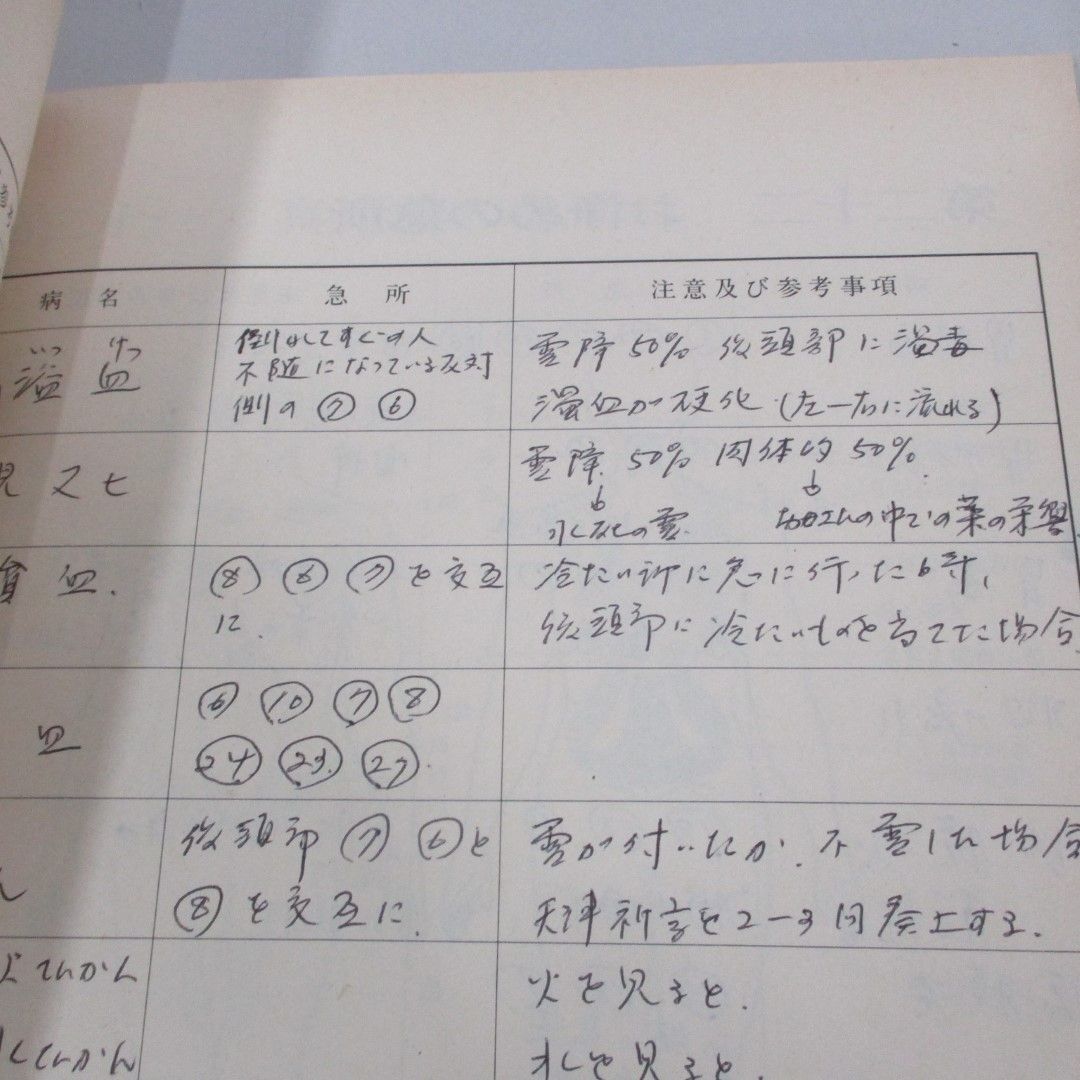 病名 急所 注意及び参考事項
いっ けつ
溢血
倒れてすぐの人
不随になっている反対
側の ⑦ ⑥
霊障 50% 後頭部に濁毒
濁血が硬化 (左-右に流れる)
児マヒ
霊障 50% 肉体的 50%
水などの霊
お母さんの中での薬の
貧血.
⑧ ⑥ ⑦ を交互
に.
冷たい所に急に行った時、
後頭部に冷たいものを当てた場合
血
⑥ ⑩ ⑦ ⑧
㉔ ㉓ ㉗
ん
後頭部 ⑦ ⑥ と
⑧ を交互に.
霊が付いたか. 霊した場合
天津祈言を2-3回奏上する.
てんかん
火を見ると.
水てんかん
水を見ると.